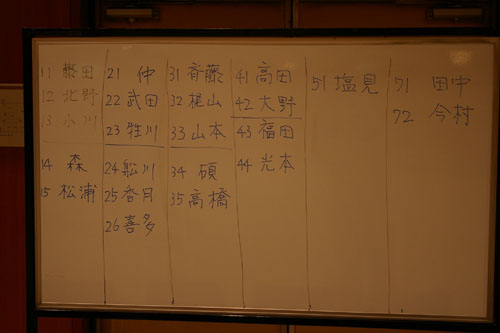 11 藤田
12 北野
13 小川
14 森
15 松浦
21 仲
22 武田
23 牲川
24 舩川
25 香月
26 喜多
31 斉藤
32 梶山
33 山本
34 碩
35 高橋
41 高田
42 大野
43 福田
44 光本
51 塩見
71 田中
72 今村